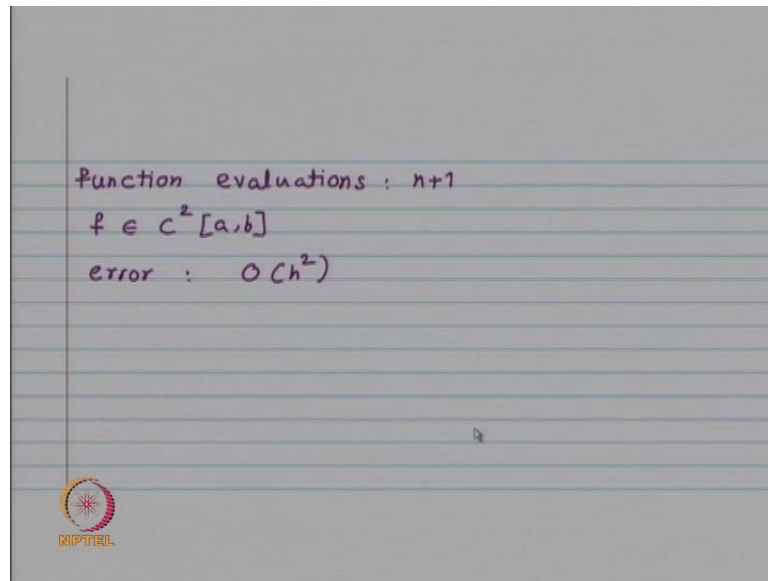 function evaluations : n+1
f ∈ C² [a,b]
error : O(h²)
NPTEL